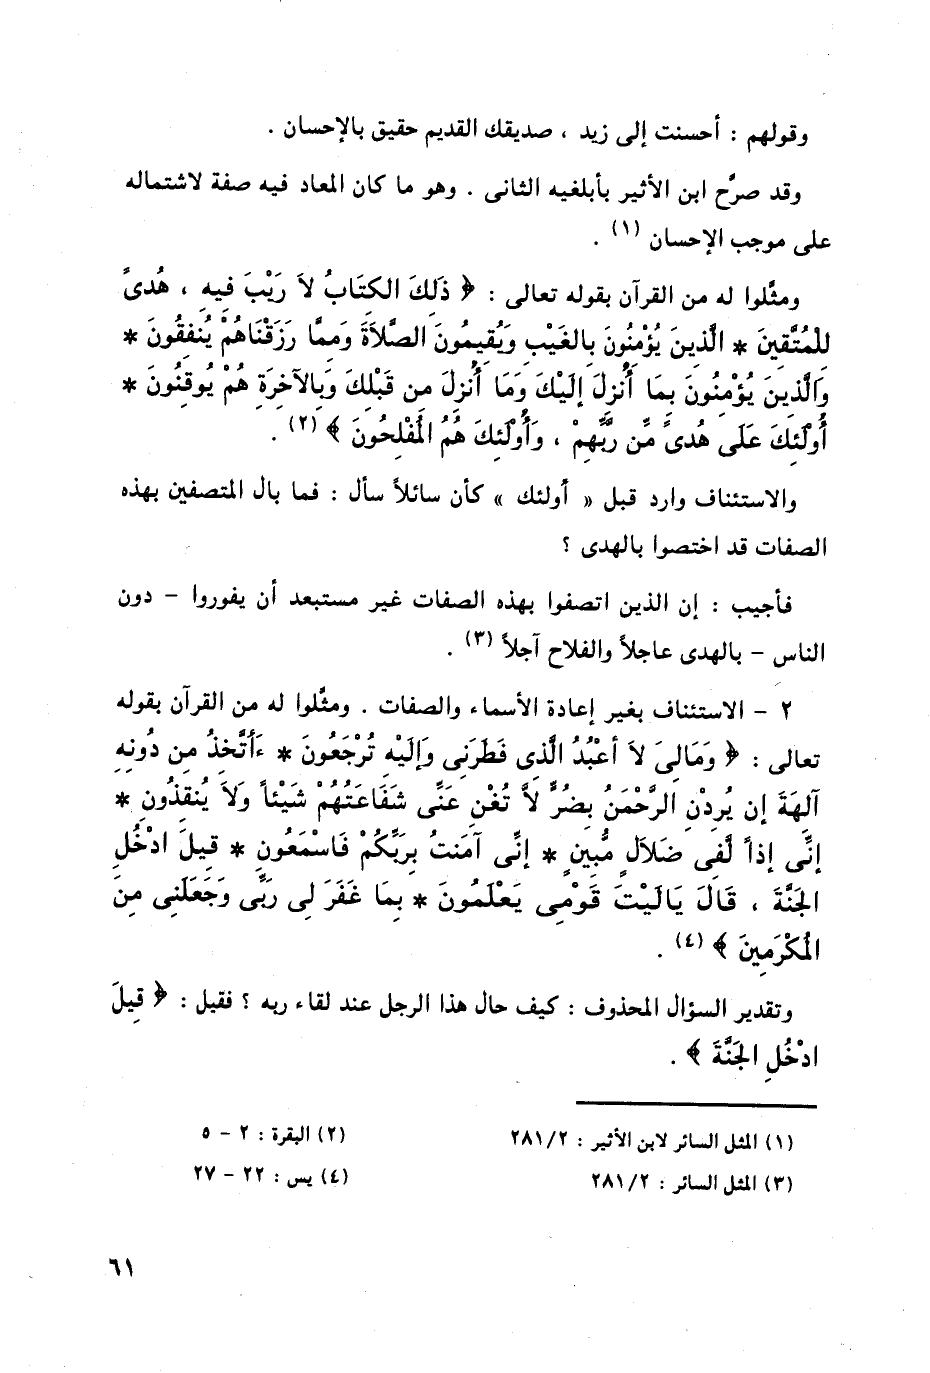 وقولهم : أحسنت إلى زيد ، صديقك القديم حقيق بالإحسان .
وقد صرَّح ابن الأثير بأبلغيه الثانى . وهو ما كان المعاد فيه صفة لاشتماله
على موجب الإحسان (١) .
ومثَّلوا له من القرآن بقوله تعالى : ﴿ ذَلِكَ الكِتَابُ لاَ رَيْبَ فِيهِ ، هُدىً
لِلْمُتَّقِينَ * الَّذِينَ يُؤْمِنُونَ بِالغَيْبِ وَيُقِيمُونَ الصَّلاَةَ وَمِمَّا رَزَقْنَاهُمْ يُنفِقُونَ *
وَالَّذِينَ يُؤْمِنُونَ بِمَا أُنزِلَ إِلَيْكَ وَمَا أُنزِلَ مِن قَبْلِكَ وَبِالآخِرَةِ هُمْ يُوقِنُونَ *
أُولَئِكَ عَلَى هُدىً مِّن رَّبِّهِمْ ، وَأُولَئِكَ هُمُ المُفْلِحُونَ ﴾ (٢) .
والاستئناف وارد قبل « أولئك » كأن سائلاً سأل : فما بال المتصفين بهذه
الصفات قد اختصوا بالهدى ؟
فأجيب : إن الذين اتصفوا بهذه الصفات غير مستبعد أن يفوروا – دون
الناس – بالهدى عاجلاً والفلاح آجلاً (٣) .
٢ – الاستئناف بغير إعادة الأسماء والصفات . ومثَّلوا له من القرآن بقوله
تعالى : ﴿ وَمَالِىَ لاَ أعْبُدُ الَّذِى فَطَرَنِى وَإلَيْهِ تُرْجَعُونَ * ءَأتَّخِذُ مِن دُونِهِ
آلِهَةً إِن يُرِدْنِ الرَّحْمَنُ بِضُرٍّ لاَّ تُغْنِ عَنِّى شَفَاعَتُهُمْ شَيْئاً وَلاَ يُنقِذُونِ *
إِنِّى إِذاً لَّفِى ضَلاَلٍ مُّبِينٍ * إِنِّى آمَنتُ بِرَبِّكُمْ فَاسْمَعُونِ * قِيلَ ادْخُلِ
الجَنَّةَ ، قَالَ يَالَيْتَ قَوْمِى يَعْلَمُونَ * بِمَا غَفَرَ لِى رَبِّى وَجَعَلَنِى مِنَ
المُكْرَمِينَ ﴾ (٤) .
وتقدير السؤال المحذوف : كيف حال هذا الرجل عند لقاء ربه ؟ فقيل : ﴿ قِيلَ
ادْخُلِ الجَنَّةَ ﴾ .
(١) المثل السائر لابن الأثير : ٢٨١/٢
(٢) البقرة : ٢ – ٥
(٣) المثل السائر : ٢٨١/٢
(٤) يس : ٢٢ – ٢٧
٦١